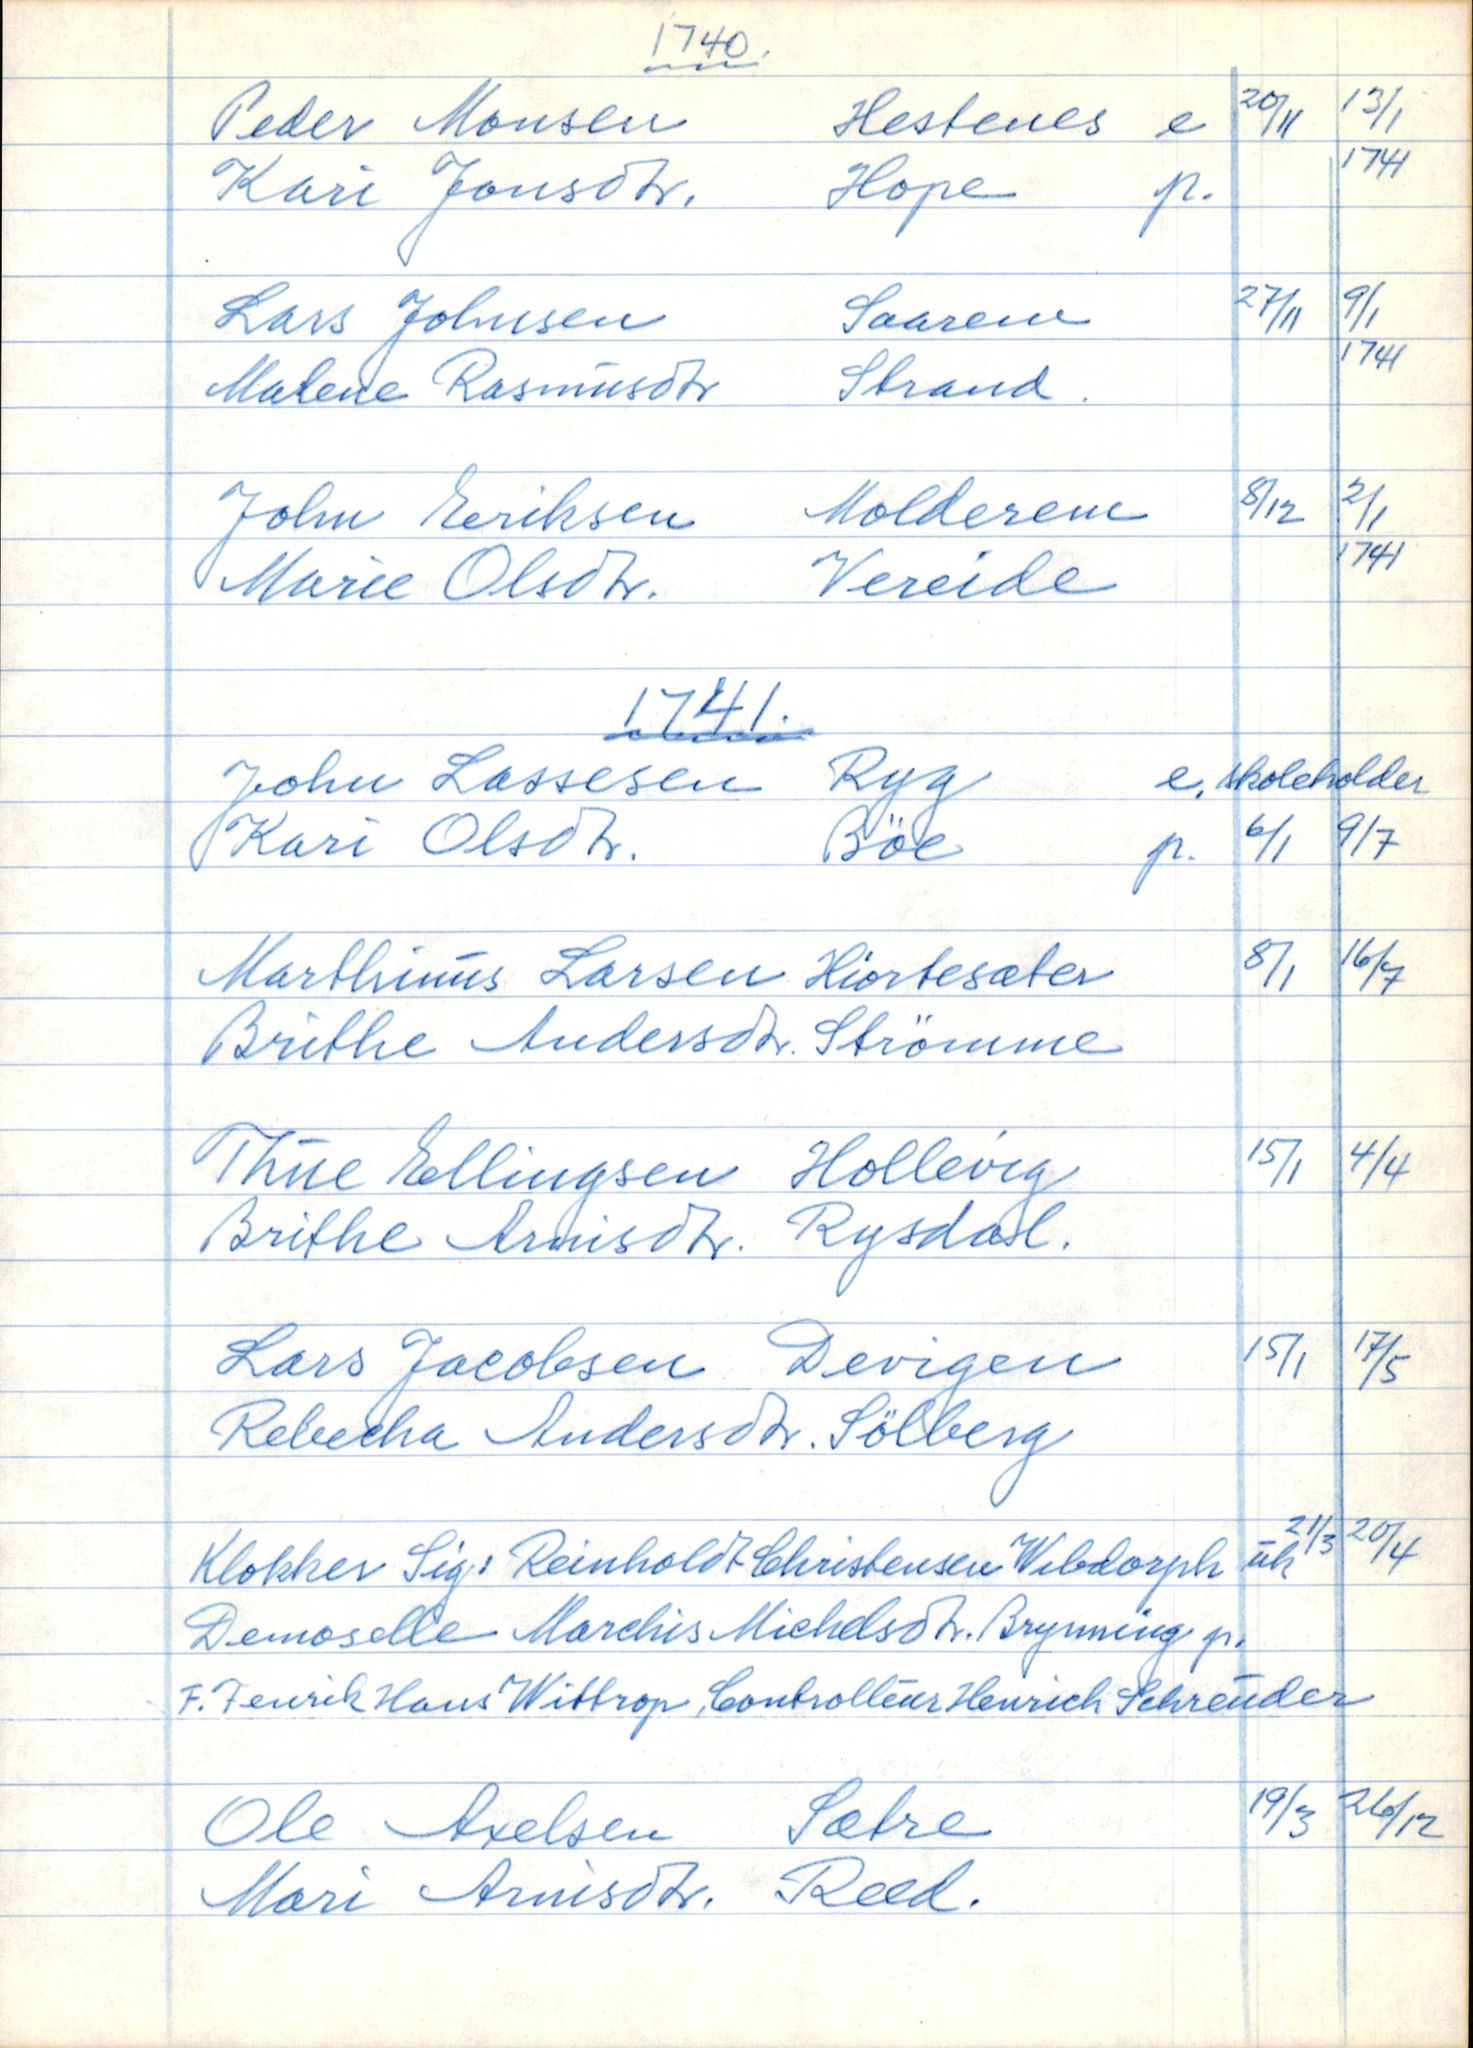 1740.
Peder Monsen Hestenes e 20/11 13/1
Kari Jonsdtr. Hope p. 1741
Lars Johnsen Saarem 27/11 9/1
Malene Rasmusdtr Strand. 1741
John Eeriksen Molderem 8/12 2/1
Marie Olsdtr. Vereide 1741
1741.
John Lassesen Ryg e, skoleholder
Kari Olsdtr. Böe p. 6/1 9/7
Marthinus Larsen Hiortesæter 8/1 16/7
Brithe Andersdtr. Strömme
Thue Ellingsen Hollevig 15/1 4/4
Brithe Arnisdtr. Rysdal.
Lars Jacobsen Devigen 15/1 17/5
Rebecha Andersdtr. Sölberg
Klokker Sig: Reinholdt Christensen Wibdorph uk 21/3 20/4
Demoselle Marchis Michelsdtr. Brynning p.
F. Fenrik Hans Wittrop, Controlleur Henrich Schreuder
Ole Axelsen Sætre 19/3 26/12
Mari Arnisdtr. Reed.